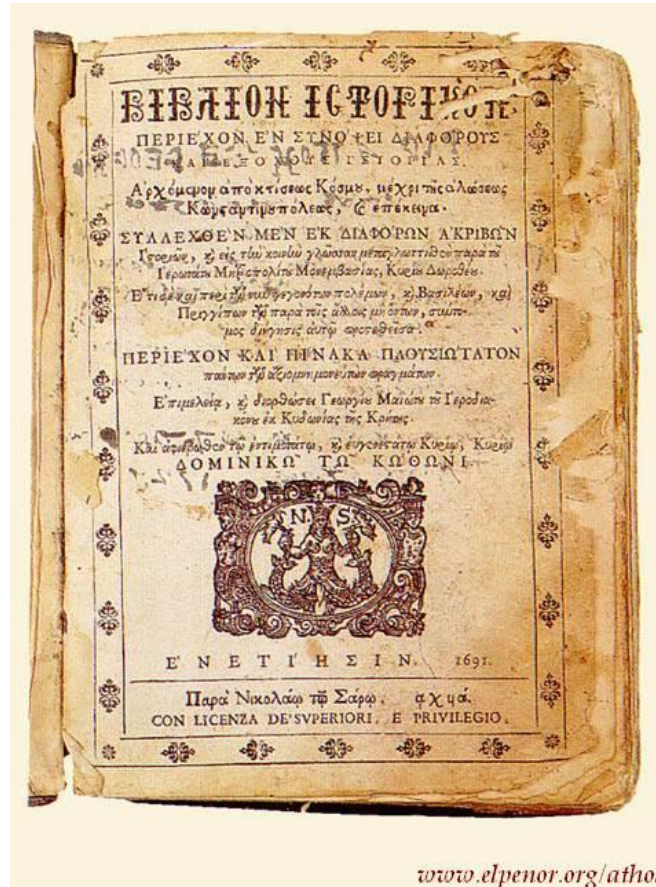 ΒΙΒΛΙΟΝ ΙΣΤΟΡΙΚΟΝ
ΠΕΡΙΕΧΟΝ ΕΝ ΣΥΝΟΨΕΙ ΔΙΑΦΟΡΟΥΣ
ΚΑΙ ΕΞΟΧΟΥΣ ΙΣΤΟΡΙΑΣ.
Αρχόμενον από κτίσεως Κόσμου, μέχρι της αλώσεως
Κωνσαντινουπόλεως, ϗ επέκεινα.
ΣΥΛΛΕΧΘΕΝ ΜΕΝ ΕΚ ΔΙΑΦΟΡΩΝ ΑΚΡΙΒΩΝ
Ιστοριών, ϗ εις την κοινήν γλώσσαν μεταγλωττισθέν παρά του
Ιερωτάτου Μητροπολίτου Μονεμβασίας, Κυρίου Δωροθέου.
Έτι δε και περί των γεγονότων πολέμων, ϗ Βασιλέων, και
Πριγγίπων των παρά τοις άλλοις σύντο-
μος διήγησις αυτώ προστεθείσα.
ΠΕΡΙΕΧΟΝ ΚΑΙ ΠΙΝΑΚΑ ΠΛΟΥΣΙΩΤΑΤΟΝ
πάντων των αξιομνημονεύτων πραγμάτων.
Επιμελεία, ϗ διορθώσει Γεωργίου Μαιώτου του Ιεροδια-
κόνου εκ Κυδωνίας της Κρήτης.
Και αφιερωθέν τω εντιμοτάτω, ϗ ευγενεστάτω Κυρίω, Κυρίω
ΔΟΜΙΝΙΚΩ ΤΩ ΚΩΘΩΝΙ
N S
ΕΝΕΤΙΗΣΙΝ. 1691.
Παρά Νικολάω τω Σάρω. αχϟά.
CON LICENZA DE' SVPERIORI, E PRIVILEGIO.
www.elpenor.org/athos